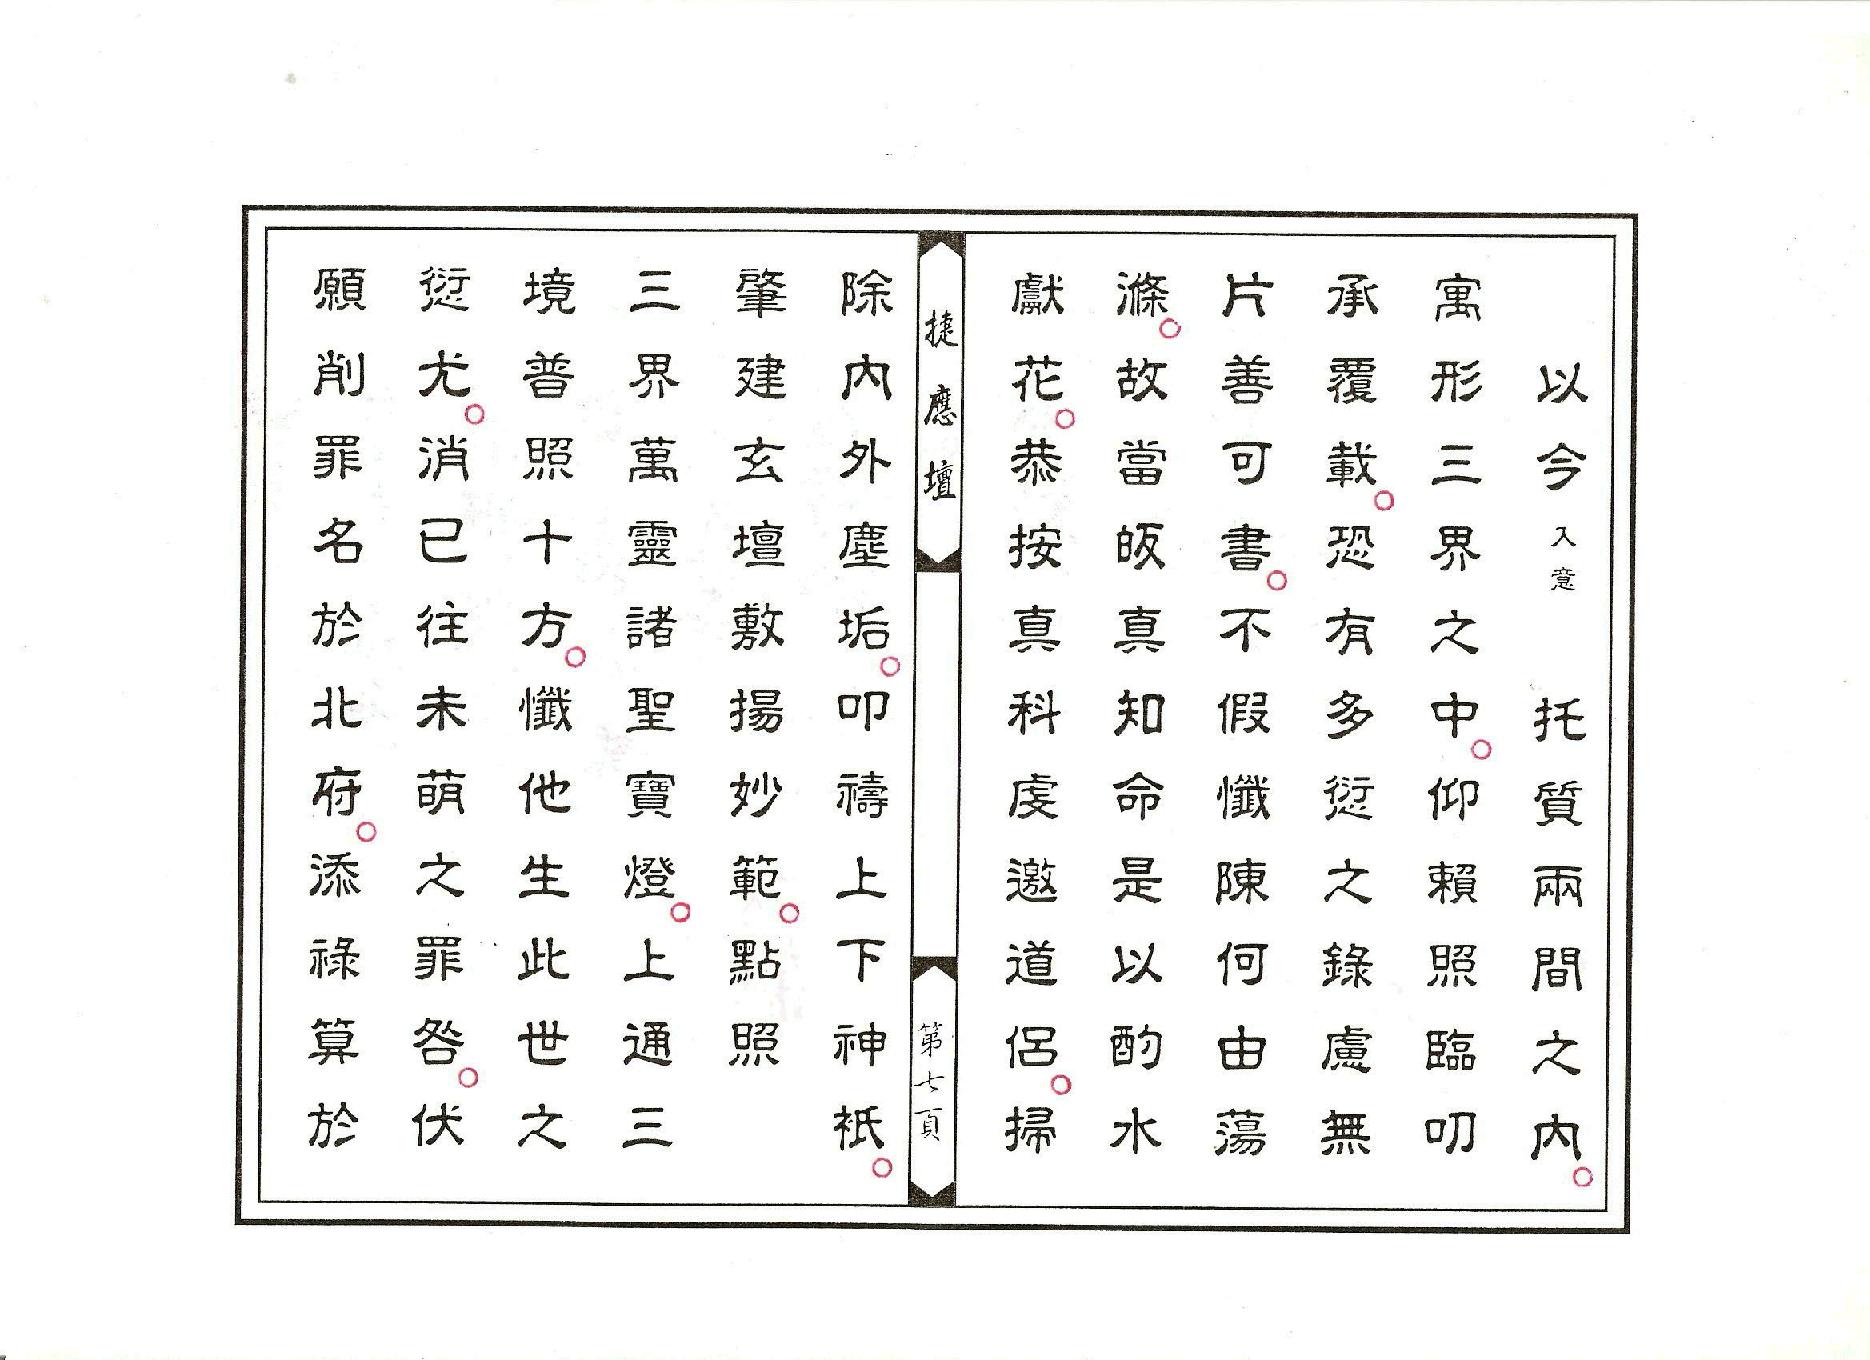 以今入意　托質兩間之內○
寓形三界之中○仰賴照臨叨
承覆載○恐有多愆之錄慮無
片善可書○不假懺陳何由蕩
滌○故當皈真知命是以酌水
獻花○恭按真科虔邀道侶○掃
捷應壇
第七頁
除內外塵垢○叩禱上下神祇○
肇建玄壇敷揚妙範○點照
三界萬靈諸聖寶燈○上通三
境普照十方○懺他生此世之
愆尤○消已往未萌之罪咎○伏
願削罪名於北府○添祿算於